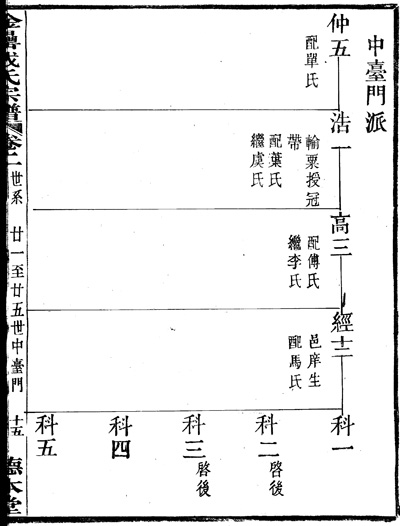 中臺門派
仲五
配單氏
浩一
輸粟授冠
帶
配葉氏
繼虞氏
高三
配傅氏
繼李氏
經十二
邑庠生
配馬氏
科一
科二
啓後
科三
啓後
科四
科五
氏宗譜
卷二
世系
廿一至廿五世中臺門
十五
本堂